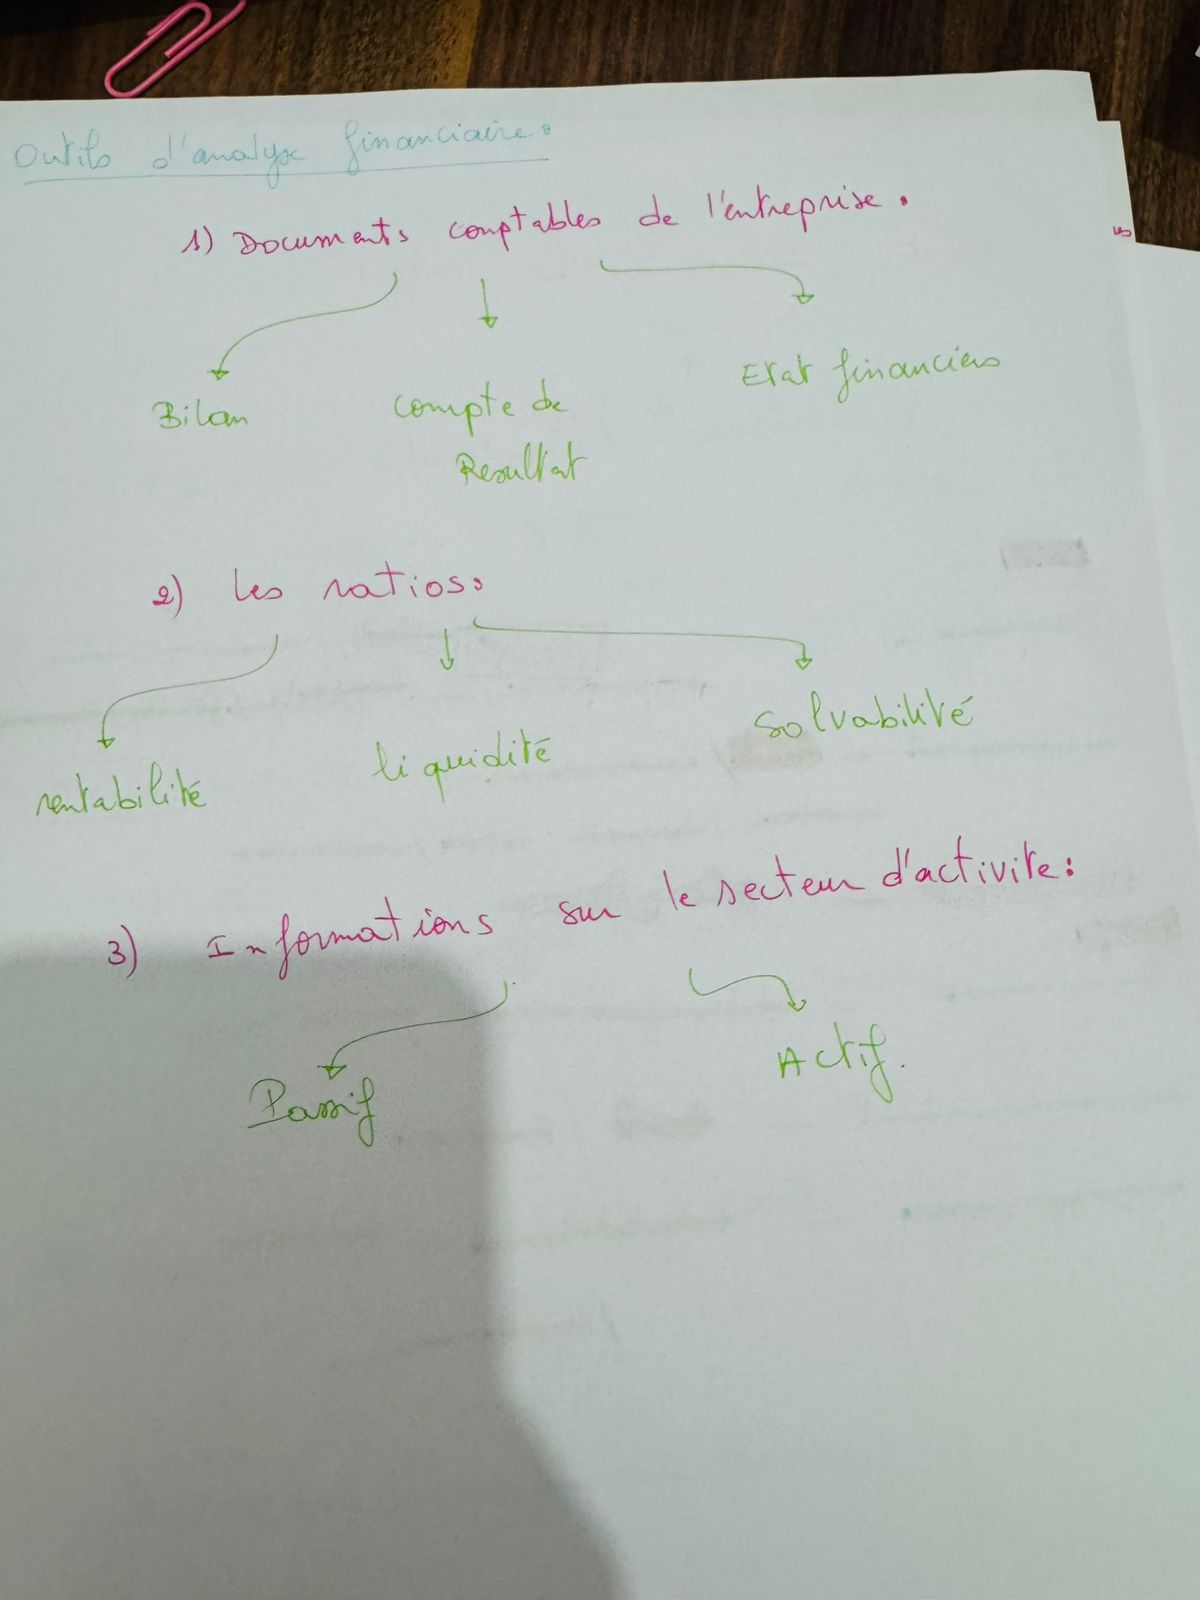 Outils d'analyse financiaire:
1) Documents comptables de l'entreprise.
Bilan
compte de
Resultat
Etat financiers
2) les ratios:
rentabilité
liquidité
solvabilité
3) Informations sur le secteur d'activite:
Passif
Actif.